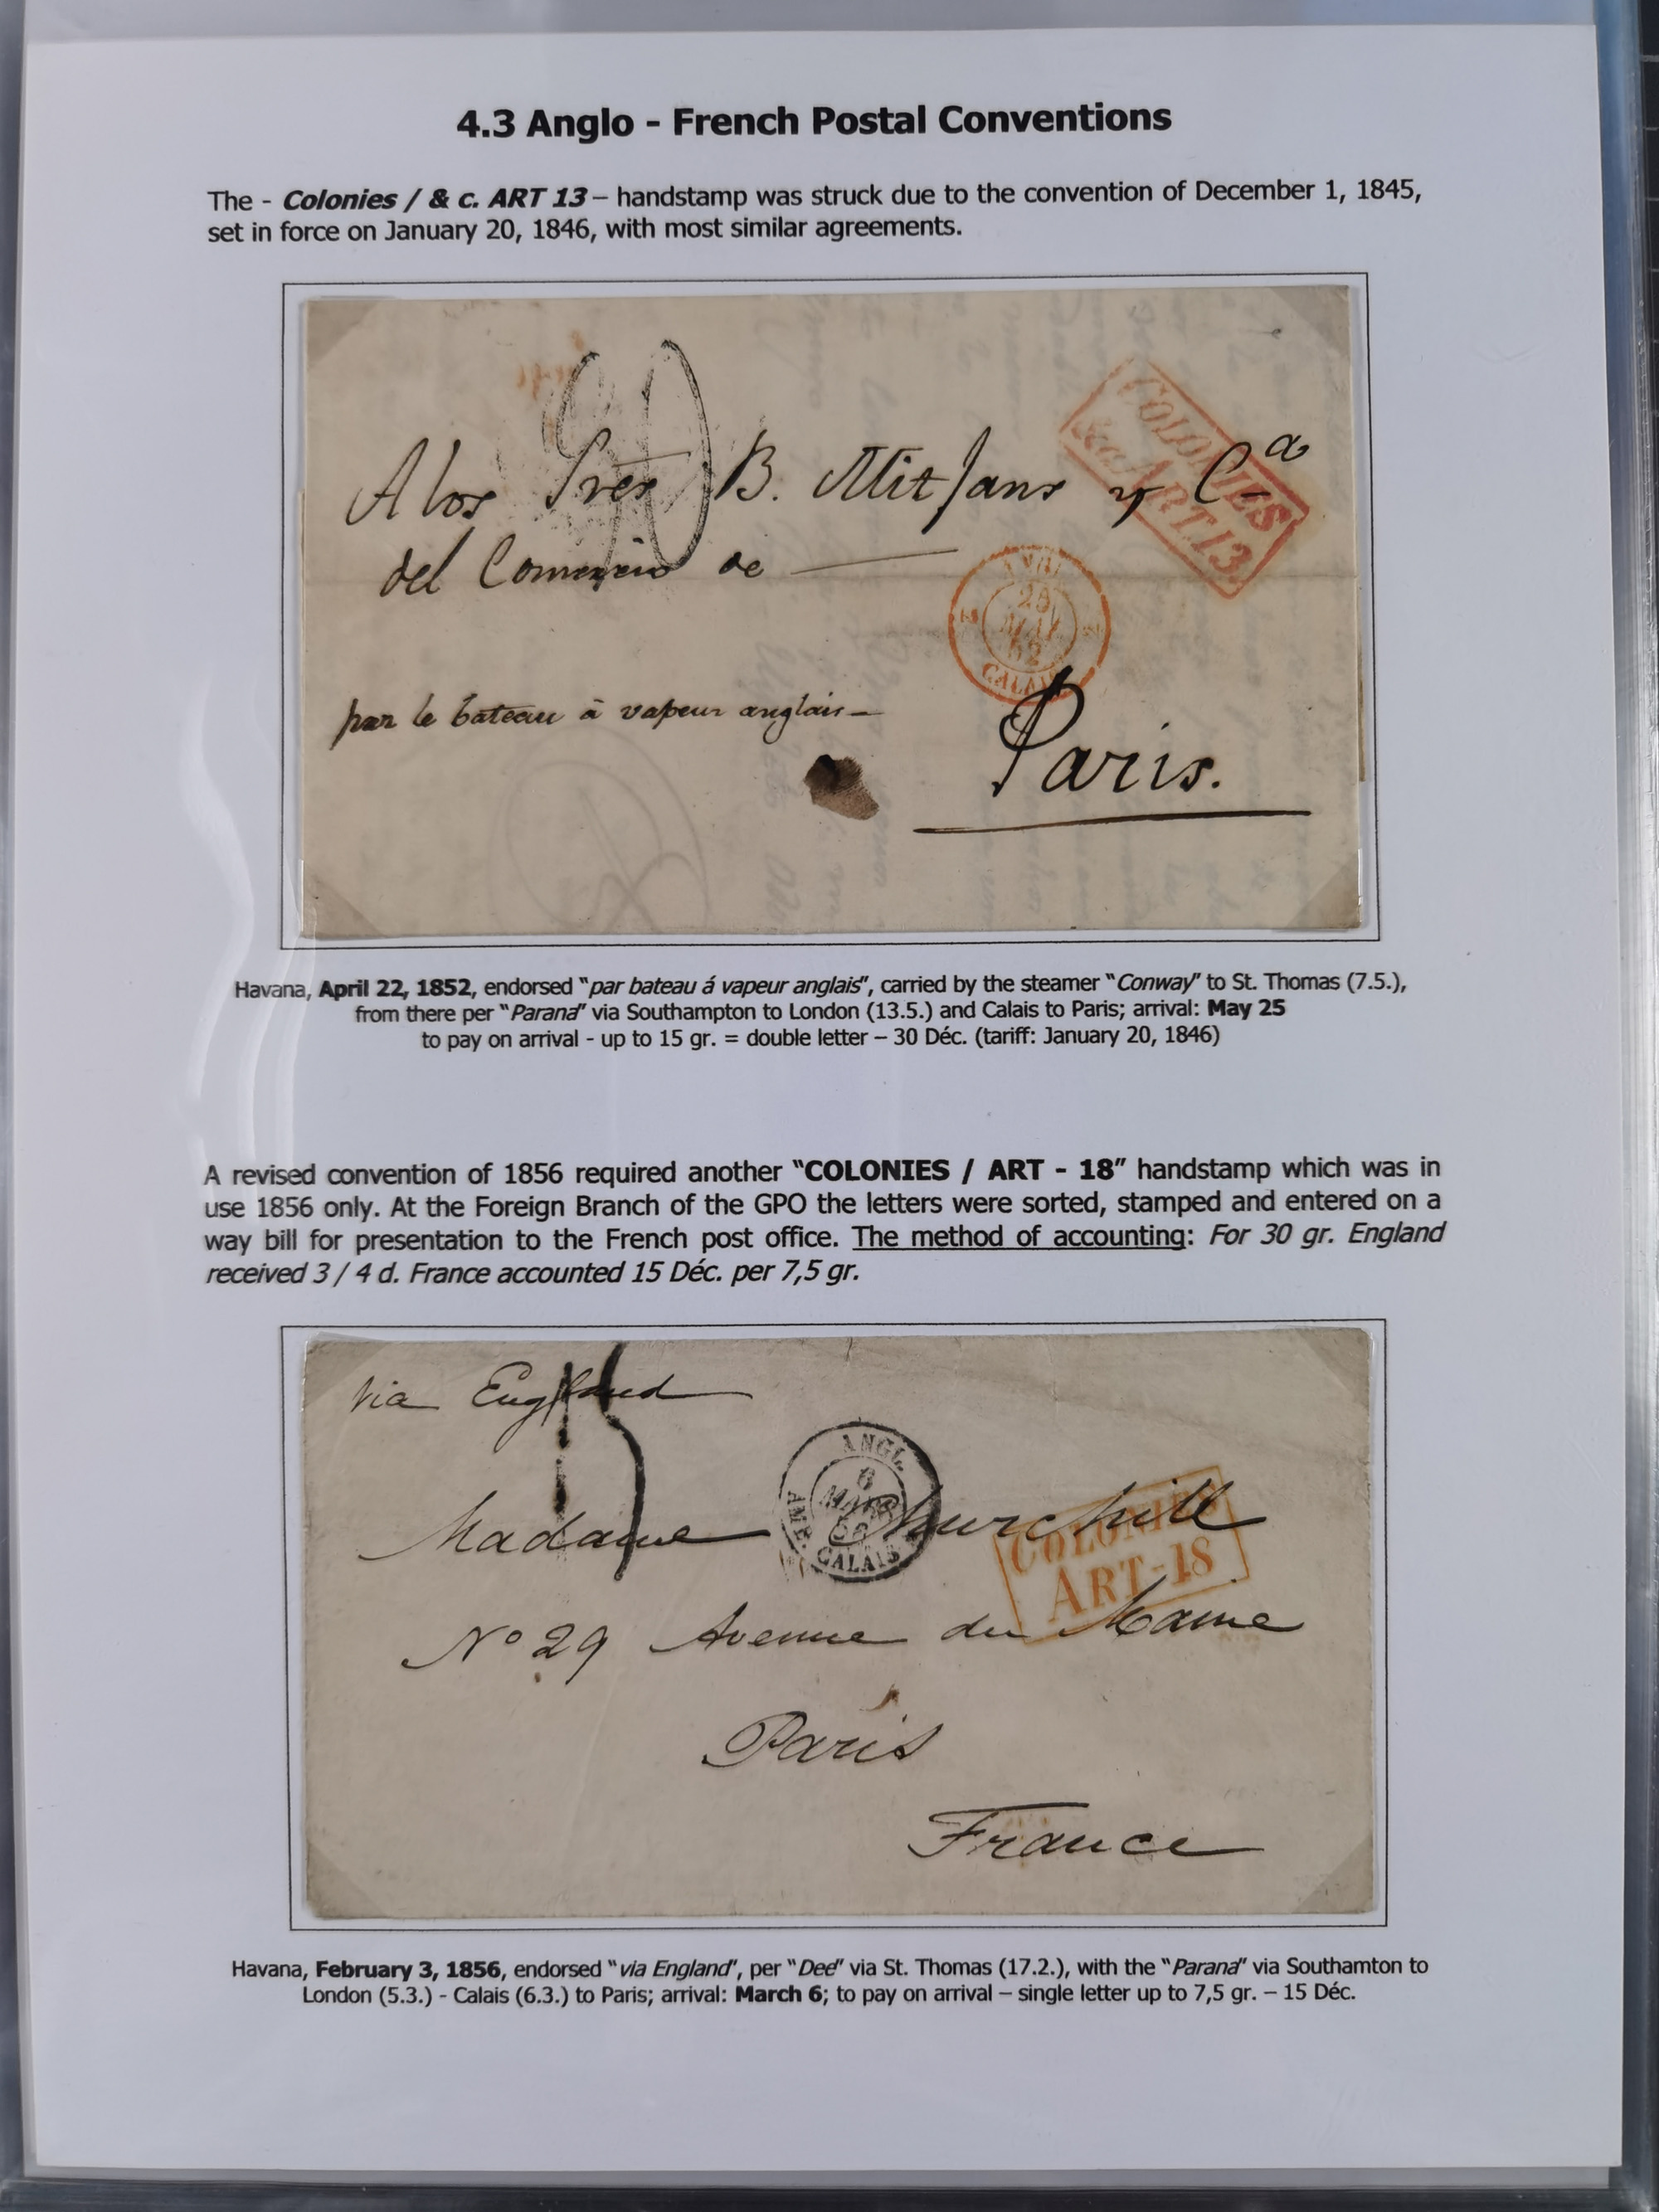 4.3 Anglo - French Postal Conventions
The - Colonies / & c. ART 13 – handstamp was struck due to the convention of December 1, 1845,
set in force on January 20, 1846, with most similar agreements.
COLONIES
&c. ART.13.
A los Sres B. Mitjans y Ca
del Comercio de
ANGL.
25
MAI
52
CALAIS
par le bateau à vapeur anglais
Paris.
Havana, April 22, 1852, endorsed "par bateau á vapeur anglais", carried by the steamer "Conway" to St. Thomas (7.5.),
from there per "Parana" via Southampton to London (13.5.) and Calais to Paris; arrival: May 25
to pay on arrival - up to 15 gr. = double letter – 30 Déc. (tariff: January 20, 1846)
A revised convention of 1856 required another "COLONIES / ART - 18" handstamp which was in
use 1856 only. At the Foreign Branch of the GPO the letters were sorted, stamped and entered on a
way bill for presentation to the French post office. The method of accounting: For 30 gr. England
received 3 / 4 d. France accounted 15 Déc. per 7,5 gr.
via England
15
ANGL.
6
MARS
56
AMB. CALAIS
Madame Churchill
COLONIES
ART-18
No 29 Avenue du Maine
Paris
France
Havana, February 3, 1856, endorsed "via England", per "Dee" via St. Thomas (17.2.), with the "Parana" via Southamton to
London (5.3.) - Calais (6.3.) to Paris; arrival: March 6; to pay on arrival – single letter up to 7,5 gr. – 15 Déc.